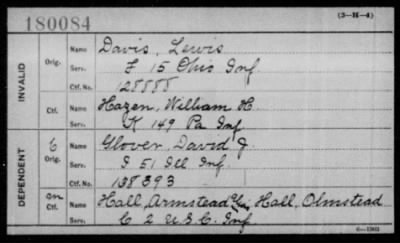 180084
(3-H-4)
INVALID
Orig.
Name Davis, Lewis
Serv. F 15 Ohio Inf.
Ctf. No. 128888
Ctf.
Name Hazen, William H.
Serv. K 149 Pa Inf
DEPENDENT
C Orig.
Name Glover, David J.
Serv. I 51 Ill Inf.
Ctf. No. 138393
Ctf.
Name Hall, Armstead Hall, Olmstead
Serv. C 2 U.S.C. Inf.